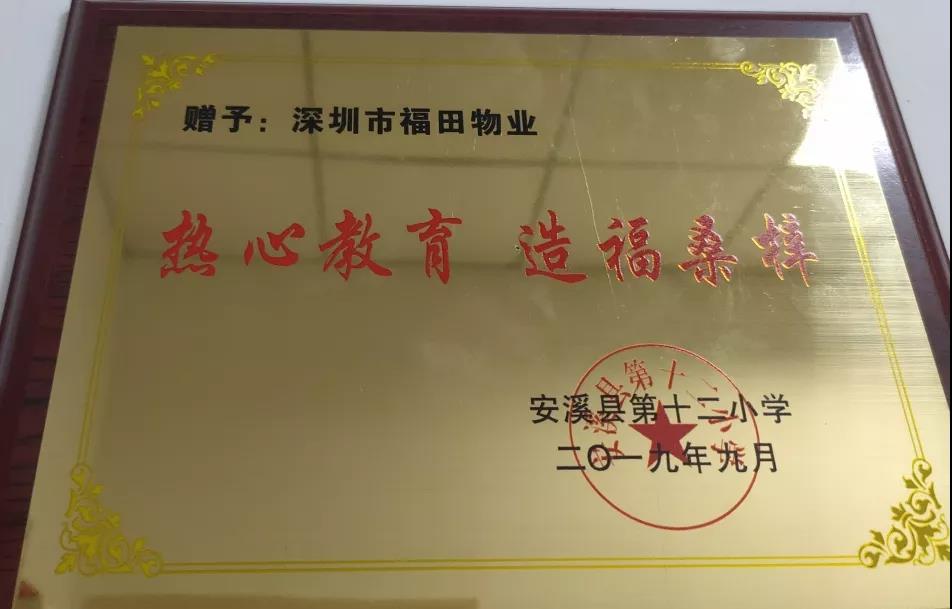 赠予：深圳市福田物业
热心教育 造福桑梓
安溪县第十二小学
二〇一九年九月
安溪县第十二小学